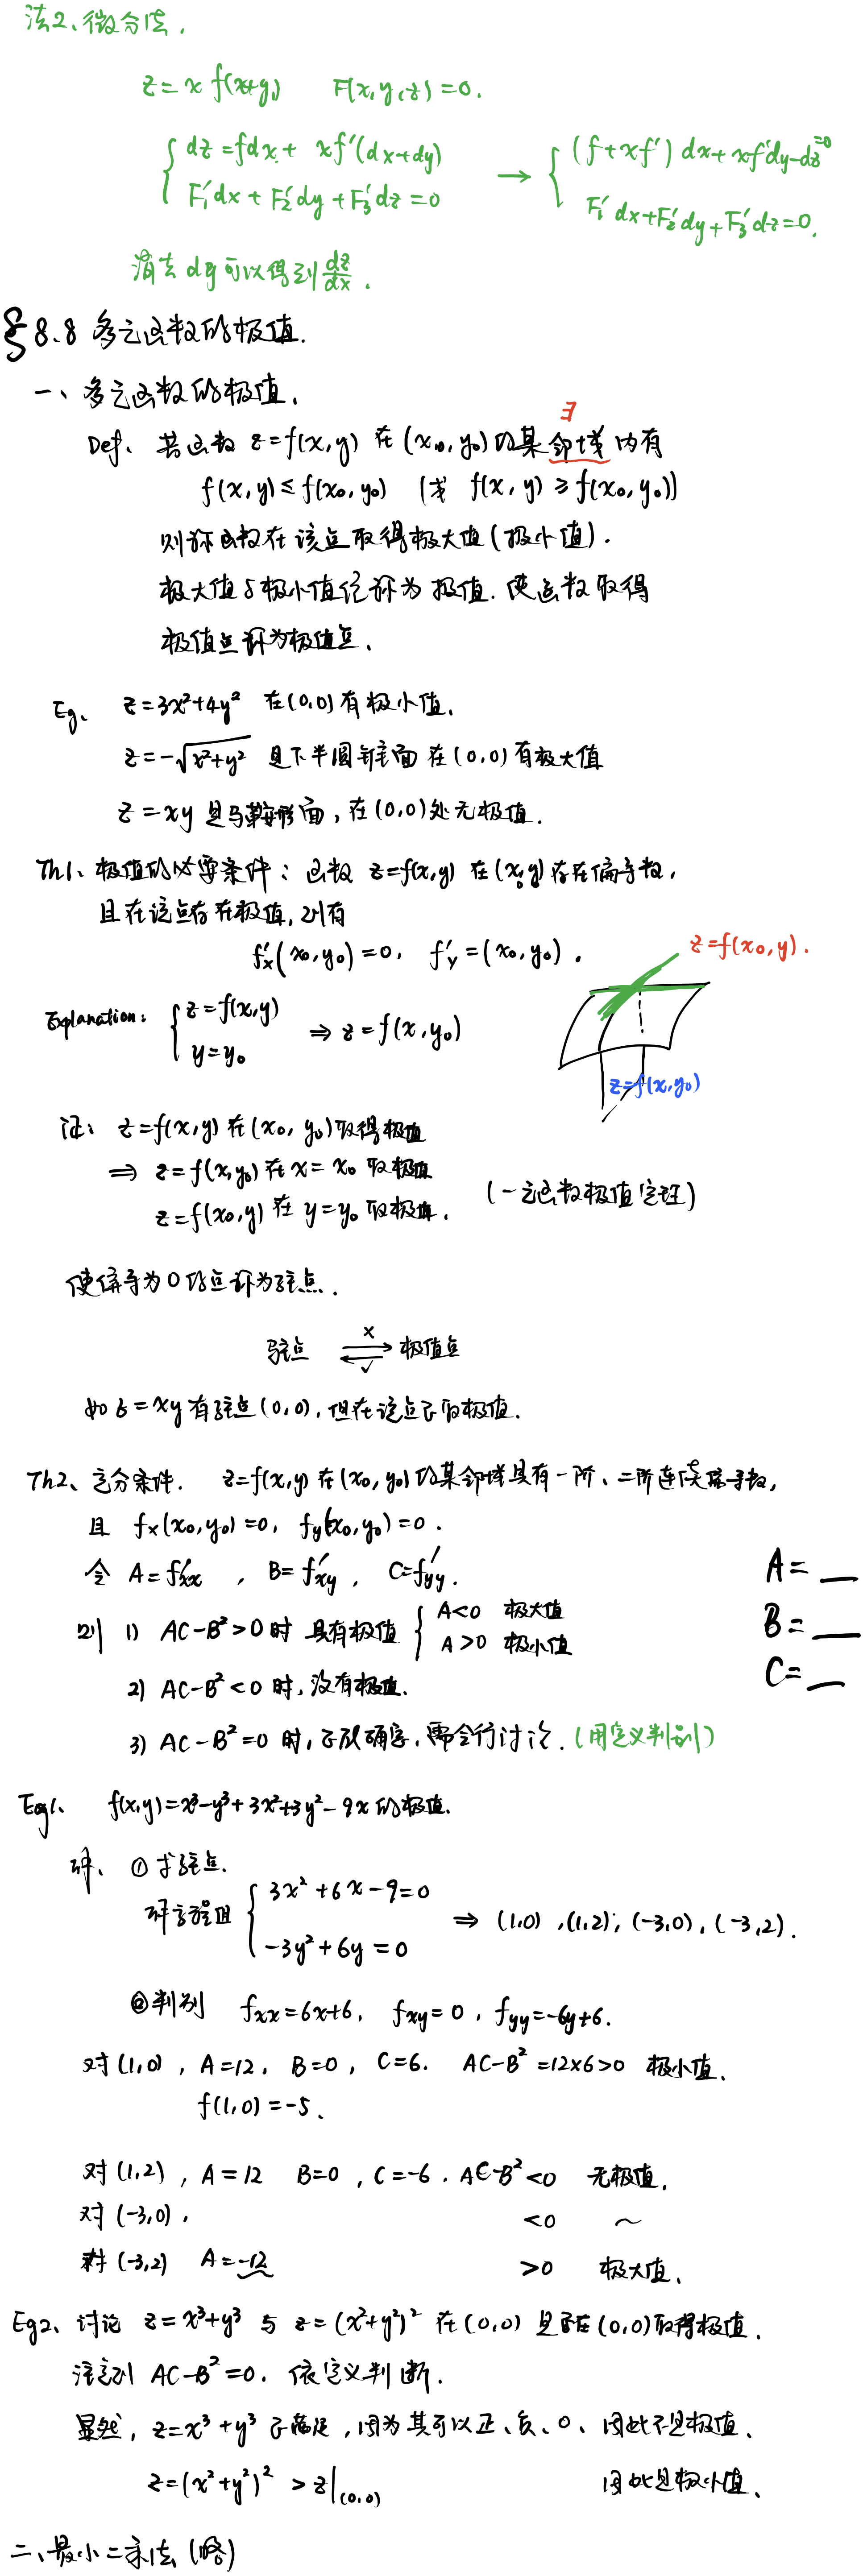 法2、微分法.
z = x f(x+y)   F(x, y, z) = 0.
{ dz = fdx + xf'(dx+dy)   → { (f+xf') dx + xf'dy - dz = 0
F₁'dx + F₂'dy + F₃'dz = 0   F₁'dx + F₂'dy + F₃'dz = 0.
消去 dy 可以得到 dz/dx .
§8.8 多元函数的极值.
一、多元函数的极值.
∃
Def. 若函数 z = f(x, y) 在 (x₀, y₀) 的某邻域内有
f(x, y) ≤ f(x₀, y₀) (或 f(x, y) ≥ f(x₀, y₀))
则称函数在该点取得极大值 (极小值).
极大值与极小值统称为极值. 使函数取得
极值点称为极值点.
Eg. z = 3x²+4y² 在 (0,0) 有极小值.
z = -√(x²+y²) 是下半圆锥面 在 (0,0) 有极大值
z = xy 是马鞍形面, 在 (0,0) 处无极值.
Th1. 极值的必要条件: 函数 z = f(x,y) 在 (x₀,y) 存在偏导数,
且在该点存在极值, 则有
fx'(x₀,y₀) = 0, fy' = (x₀, y₀) .
z = f(x₀, y).
Explanation: { z = f(x,y)   ⇒ z = f(x, y₀)
y = y₀
z = f(x, y₀)
证: z = f(x,y) 在 (x₀, y₀) 取得极值
⇒ z = f(x,y₀) 在 x = x₀ 取极值
z = f(x₀, y) 在 y = y₀ 取极值. (一元函数极值定理)
使偏导为 0 的点称为驻点.
驻点 ⇄ 极值点
x
✓
如 z = xy 有驻点 (0,0), 但在该点不取极值.
Th2、充分条件. z = f(x,y) 在 (x₀, y₀) 的某邻域具有一阶、二阶连续偏导数,
且 fx(x₀,y₀) = 0, fy(x₀,y₀) = 0.
令 A = f''xx , B = f''xy , C = f''yy.
A = __
B = __
C = __
则 1) AC-B² > 0 时 具有极值 { A<0 极大值
A>0 极小值
2) AC-B² < 0 时, 没有极值.
3) AC-B² = 0 时, 不能确定, 需令行讨论. (用定义判别)
Eg1、 f(x,y) = x³-y³+3x²+3y²-9x 的极值.
解、 ① 求驻点.
解方程组 { 3x²+6x-9 = 0   ⇒ (1,0), (1,2), (-3,0), (-3,2).
-3y²+6y = 0
② 判别 fxx = 6x+6, fxy = 0, fyy = -6y+6.
对 (1,0), A = 12, B = 0, C = 6. AC-B² = 12×6 > 0 极小值.
f(1,0) = -5.
对 (1,2), A = 12 B = 0, C = -6. AC-B² < 0 无极值.
对 (-3,0), < 0 ~
对 (-3,2) A = -12 > 0 极大值.
Eg2、讨论 z = x³+y³ 与 z = (x²+y²)² 在 (0,0) 是否在 (0,0) 取得极值.
注意到 AC-B² = 0. 依定义判断.
显然, z = x³+y³ 不满足, 因为其可以正、负、0、因此不是极值.
z = (x²+y²)² > z|(0,0) 因此是极小值.
二、最小二乘法 (略)